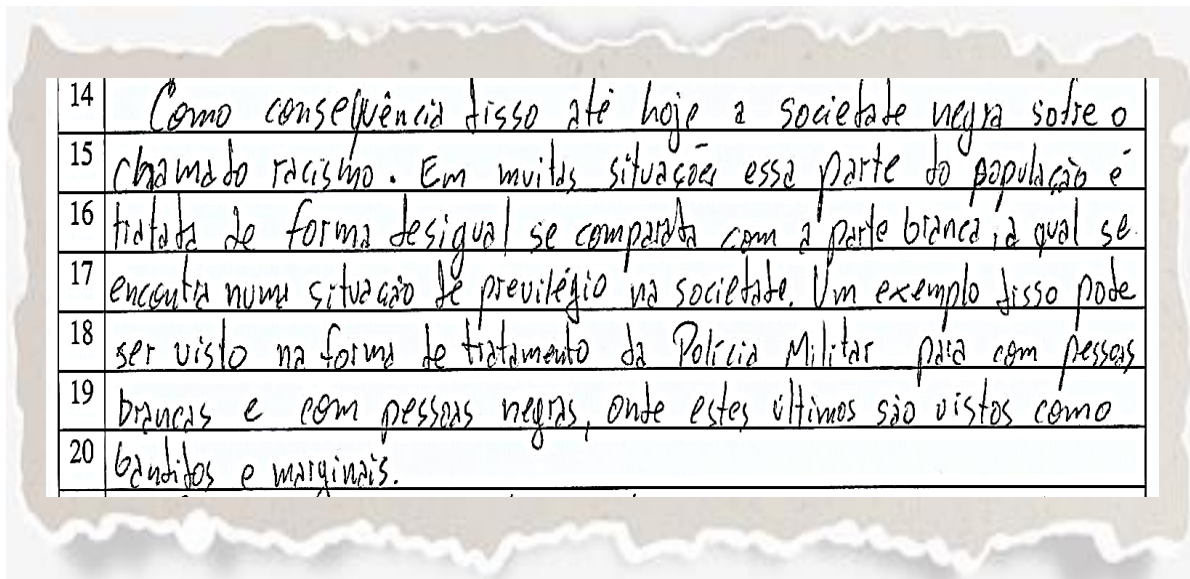 14 Como consequência disso até hoje a sociedade negra sofre o
15 chamado racismo. Em muitas situações essa parte do população é
16 tratada de forma desigual se comparada com a parte branca, a qual se
17 encontra numa situação de previlégio na sociedade. Um exemplo disso pode
18 ser visto na forma de tratamento da Polícia Militar para com pessoas
19 brancas e com pessoas negras, onde estes últimos são vistos como
20 bandidos e marginais.